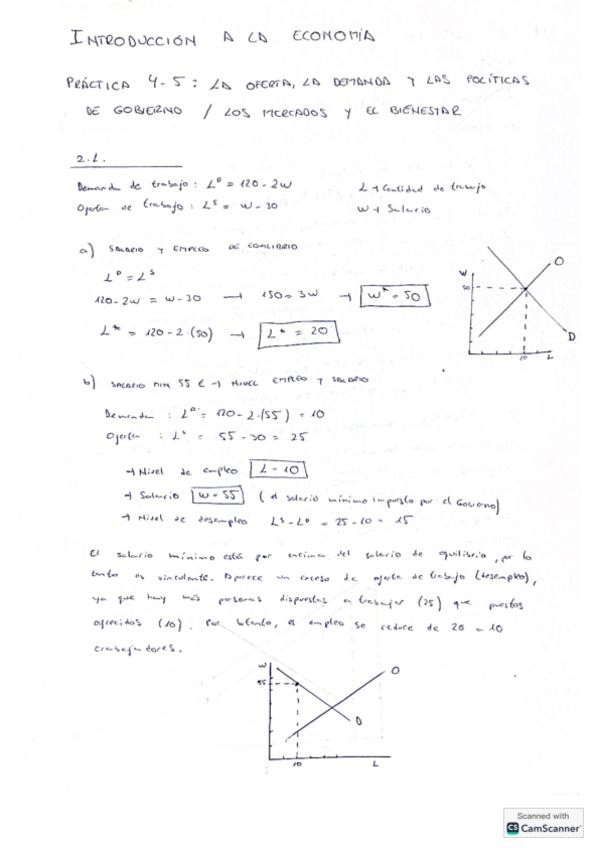 INTRODUCCIÓN A LA ECONOMÍA
PRÁCTICA 4-5: LA OFERTA, LA DEMANDA Y LAS POLÍTICAS
DE GOBIERNO / LOS MERCADOS Y EL BIENESTAR
2.1.
Demanda de trabajo: L^D = 120 - 2W
L → Cantidad de trabajo
Oferta de trabajo: L^S = W - 30
W → Salario
a) SALARIO Y EMPLEO DE EQUILIBRIO
L^D = L^S
120 - 2W = W - 30 → 150 = 3W → W* = 50
L* = 120 - 2·(50) → L* = 20
W
50
O
D
10
L
b) SALARIO MIN 55 € → NIVEL EMPLEO Y SALARIO
Demanda : L^D = 120 - 2·(55) = 10
Oferta : L^S = 55 - 30 = 25
→ Nivel de empleo L = 10
→ Salario W = 55 (el salario mínimo impuesto por el Gobierno)
→ Nivel de desempleo L^S - L^D = 25 - 10 = 15
El salario mínimo está por encima del salario de equilibrio, por lo
tanto es vinculante. Aparece un exceso de oferta de trabajo (desempleo),
ya que hay más personas dispuestas a trabajar (25) que puestos
ofrecidos (10). Por tanto, el empleo se reduce de 20 a 10
trabajadores.
W
55
O
D
10
L
Scanned with
CS CamScanner